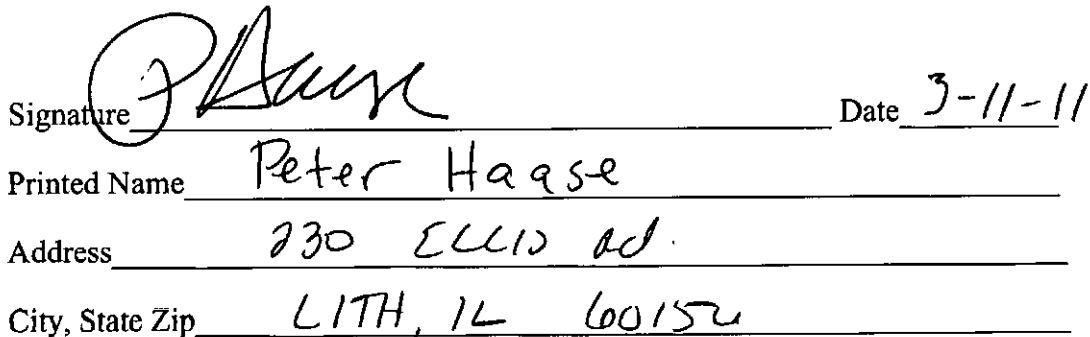 Signature P Haase Date 3-11-11
Printed Name Peter Haase
Address 230 Ellis Rd.
City, State Zip LITH, IL 60156